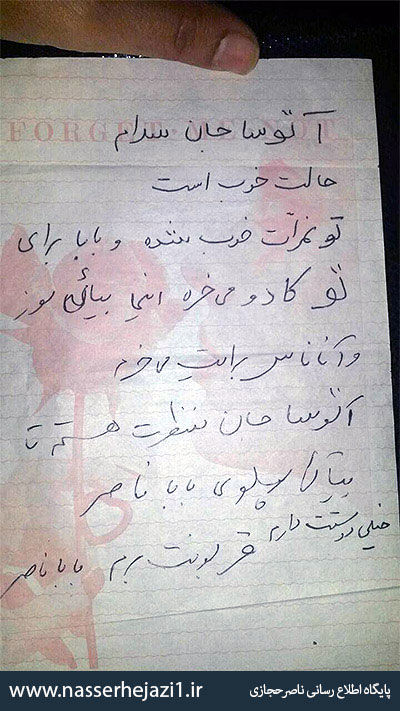 FORGET ME NOT
آتوسا جان سلام
حالت خوب است
تو نمرات خوب شده و بابا برای
تو کادو می‌خره اینجا بیائی موز
و آناناس برایت می‌خرم
آتوسا جان منتظرت هستم تا
بیائی پهلوی بابا ناصر
خیلی دوستت دارم قربونت برم بابا ناصر
www.nasserhejazi1.ir پایگاه اطلاع رسانی ناصرحجازی